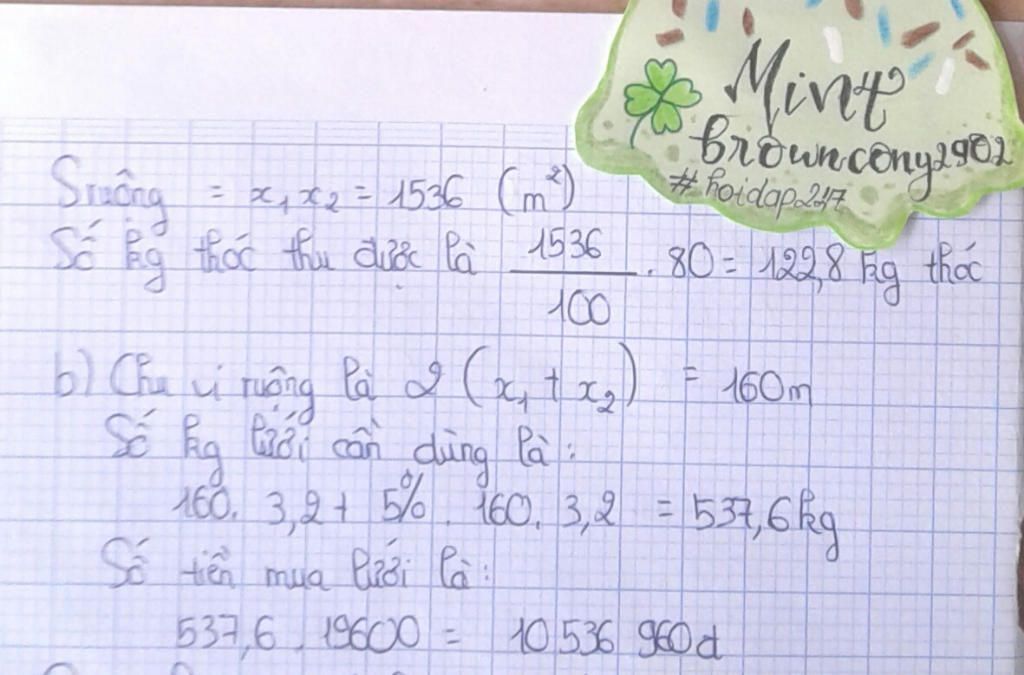 Mint
browncony2902
#hoidap247
Sruông = x₁x₂ = 1536 (m²)
Số kg thóc thu được là 1536/100 . 80 = 122,8 kg thóc
b) Chu vi ruông là 2 (x₁ + x₂) = 160m
Số kg lưới cần dùng là:
160. 3,2 + 5% . 160. 3,2 = 537,6kg
Số tiền mua lưới là:
537,6 . 19600 = 10 536 960đ